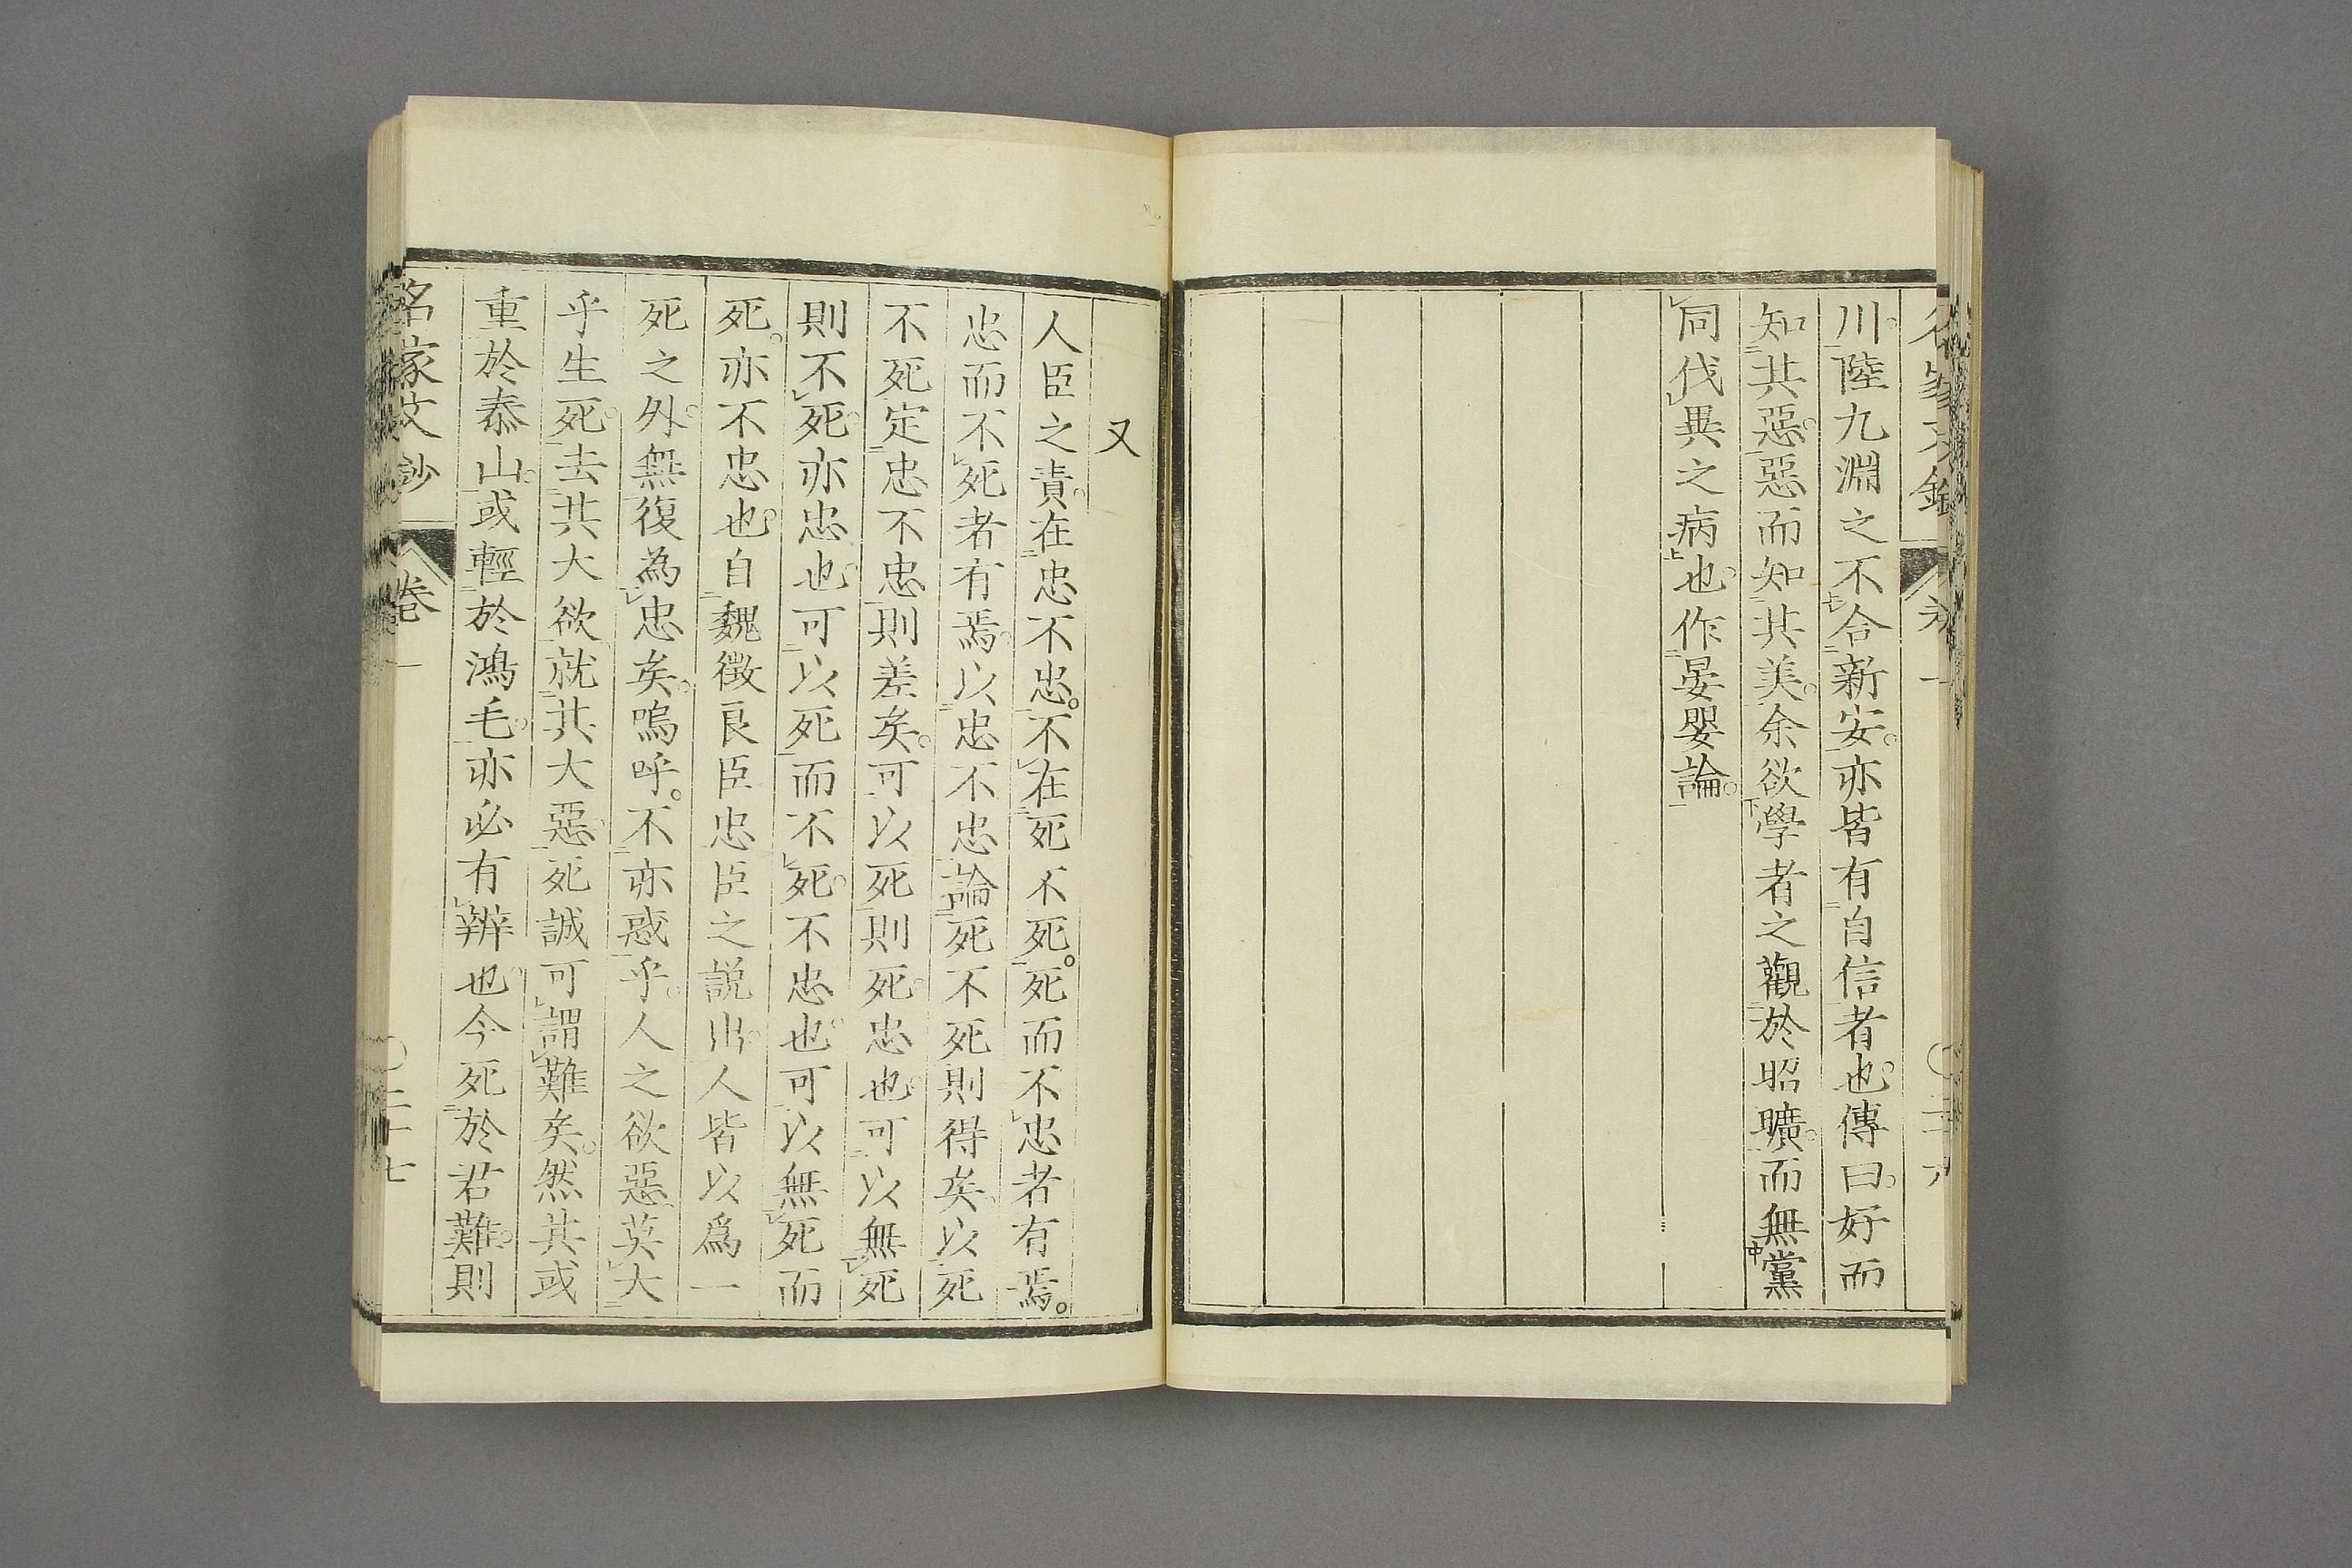 川陸九淵之不合新安。亦皆有自信者也。傳曰。好而
知其惡。惡而知其美。余欲學者之觀於昭曠。而無黨
同伐異之病也。作晏嬰論。
又
人臣之責。在忠不忠。不在死不死。死而不忠者有焉。
忠而不死者有焉。以忠不忠論死不死則得矣。以死
不死定忠不忠則差矣。可以死則死。忠也。可以無死
則不死。亦忠也。可以死而不死。不忠也。可以無死而
死。亦不忠也。自魏徵良臣忠臣之説出。人皆以爲一
死之外。無復為忠矣。嗚呼。不亦惑乎。人之欲惡。莫大
乎生死。去其大欲。就其大惡。死誠可謂難矣。然其或
重於泰山。或輕於鴻毛。亦必有辨也。今死於君難。則
名家文鈔 卷一 〇二十七